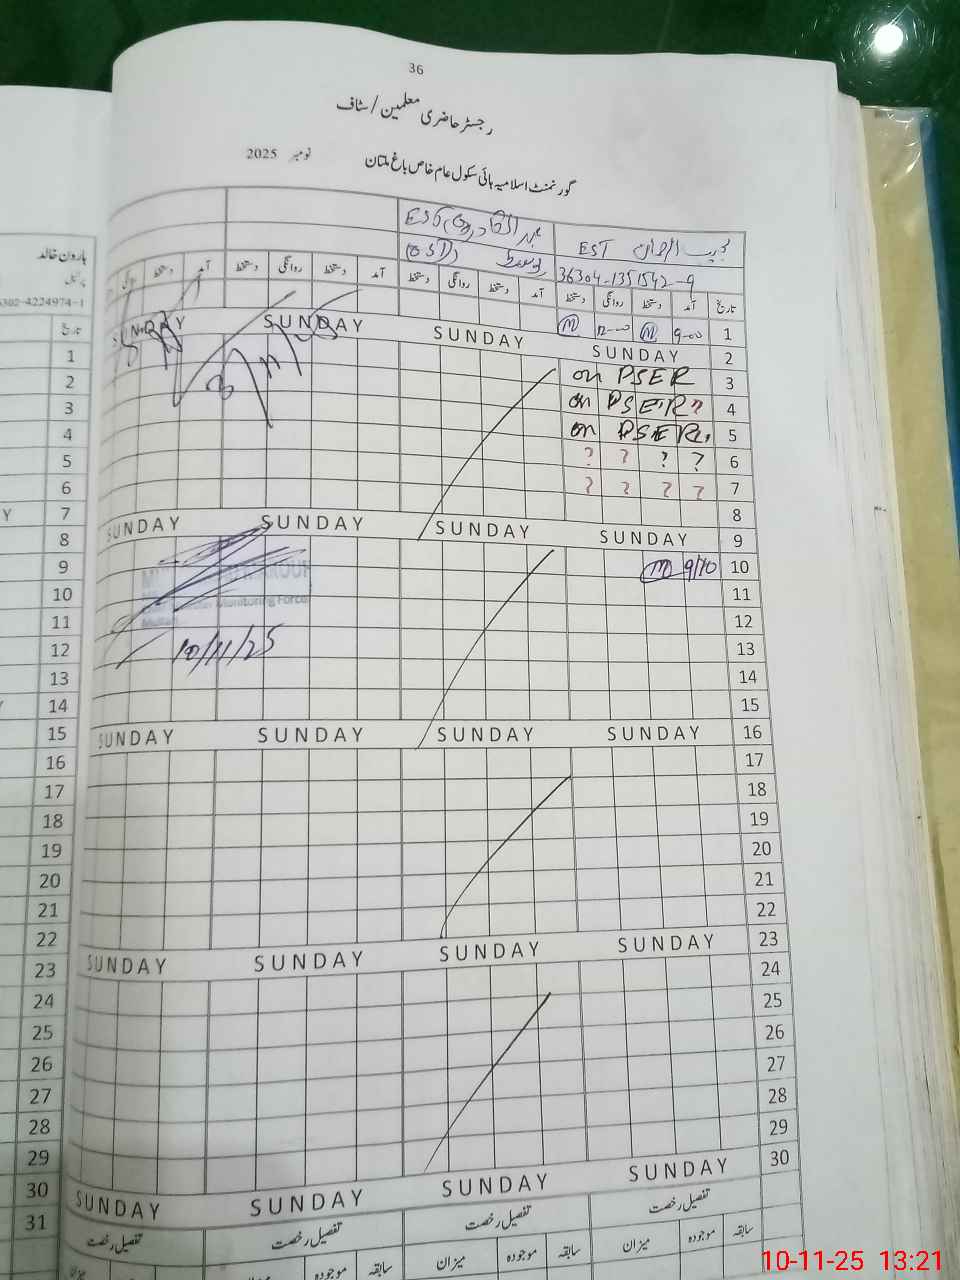 36
رجسٹر حاضری معلمین / سٹاف
گورنمنٹ اسلامیہ ہائی سکول عام خاص باغ ملتان
نومبر 2025
EST
EST
36304-1351542-9
تاریخ آمد دستخط روانگی دستخط آمد دستخط روانگی دستخط آمد دستخط روانگی دستخط آمد دستخط
1 9-00 12-00
2 SUNDAY SUNDAY SUNDAY SUNDAY
3 on PSER
4 on PSER ?
5 on PSER
6 ? ? ? ?
7 ? ? ? ?
8
9 SUNDAY SUNDAY SUNDAY SUNDAY
10 9/10
11
Monitoring Force
Multan
12
10/11/25
13
14
15
16 SUNDAY SUNDAY SUNDAY SUNDAY
17
18
19
20
21
22
23 SUNDAY SUNDAY SUNDAY SUNDAY
24
25
26
27
28
29
30 SUNDAY SUNDAY SUNDAY SUNDAY
تفصیل رخصت تفصیل رخصت تفصیل رخصت تفصیل رخصت
سابقہ موجودہ میزان سابقہ موجودہ میزان سابقہ موجودہ میزان
ہارون خالد
پرنسپل
302-4224974-1
تاریخ
1
2
3
4
5
6
Y 7
8
9
10
11
12
13
14
15
16
17
18
19
20
21
22
23
24
25
26
27
28
29
30
31
10-11-25 13:21